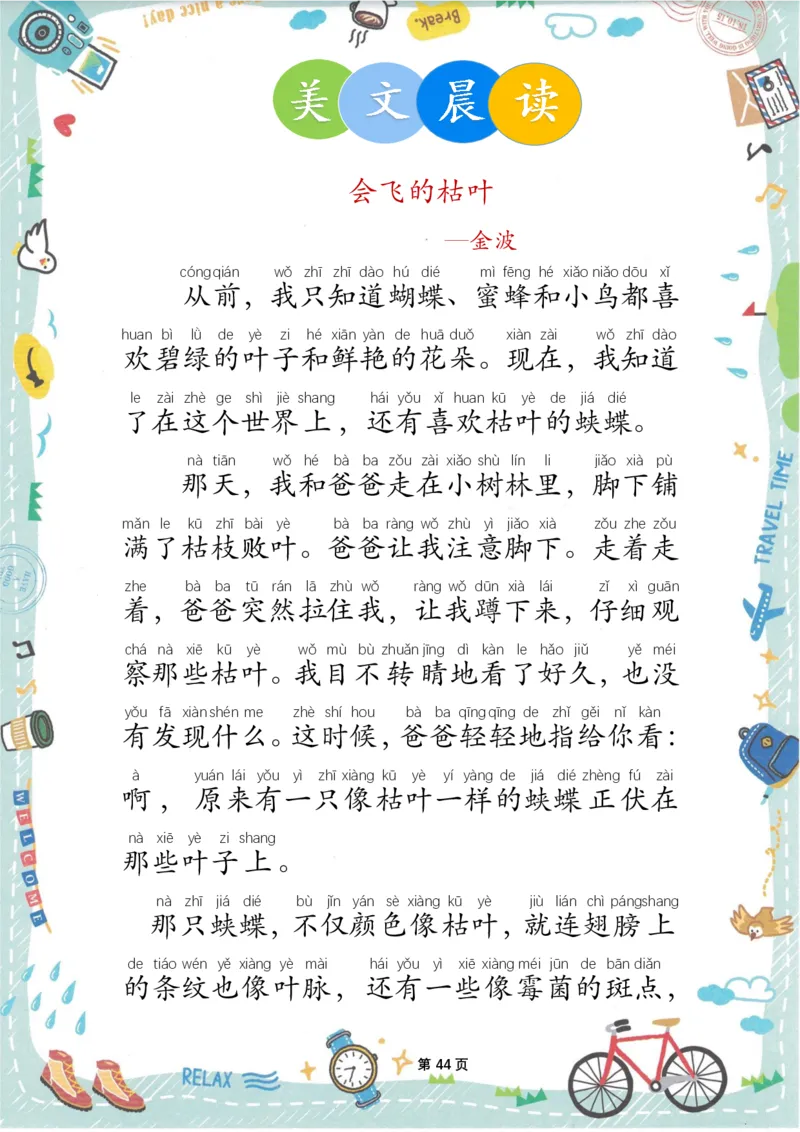 Have a nice day!
Break.
美文晨读
会飞的枯叶
—金波
cóng qián wǒ zhī zhī dào hú dié mì fēng hé xiǎo niǎo dōu xǐ
从前，我只知道蝴蝶、蜜蜂和小鸟都喜
huan bì lǜ de yè zi hé xiān yàn de huā duǒ xiàn zài wǒ zhī dào
欢碧绿的叶子和鲜艳的花朵。现在，我知道
le zài zhè ge shì jiè shang hái yǒu xǐ huan kū yè de jiá dié
了在这个世界上，还有喜欢枯叶的蛱蝶。
nà tiān wǒ hé bà ba zǒu zài xiǎo shù lín li jiǎo xià pù
那天，我和爸爸走在小树林里，脚下铺
mǎn le kū zhī bài yè bà ba ràng wǒ zhù yì jiǎo xià zǒu zhe zǒu
满了枯枝败叶。爸爸让我注意脚下。走着走
zhe bà ba tū rán lā zhù wǒ ràng wǒ dūn xià lái zǐ xì guān
着，爸爸突然拉住我，让我蹲下来，仔细观
chá nà xiē kū yè wǒ mù bù zhuǎn jīng dì kàn le hǎo jiǔ yě méi
察那些枯叶。我目不转睛地看了好久，也没
yǒu fā xiàn shén me zhè shí hou bà ba qīng qīng de zhǐ gěi nǐ kàn
有发现什么。这时候，爸爸轻轻地指给你看：
à yuán lái yǒu yì zhī xiàng kū yè yí yàng de jiá dié zhèng fú zài
啊，原来有一只像枯叶一样的蛱蝶正伏在
nà xiē yè zi shang
那些叶子上。
nà zhī jiá dié bù jǐn yán sè xiàng kū yè jiù lián chì páng shang
那只蛱蝶，不仅颜色像枯叶，就连翅膀上
de tiáo wén yě xiàng yè mài hái yǒu yì xiē xiàng méi jūn de bān diǎn
的条纹也像叶脉，还有一些像霉菌的斑点，
TRAVEL TIME
WELCOME
RELAX
第 44 页